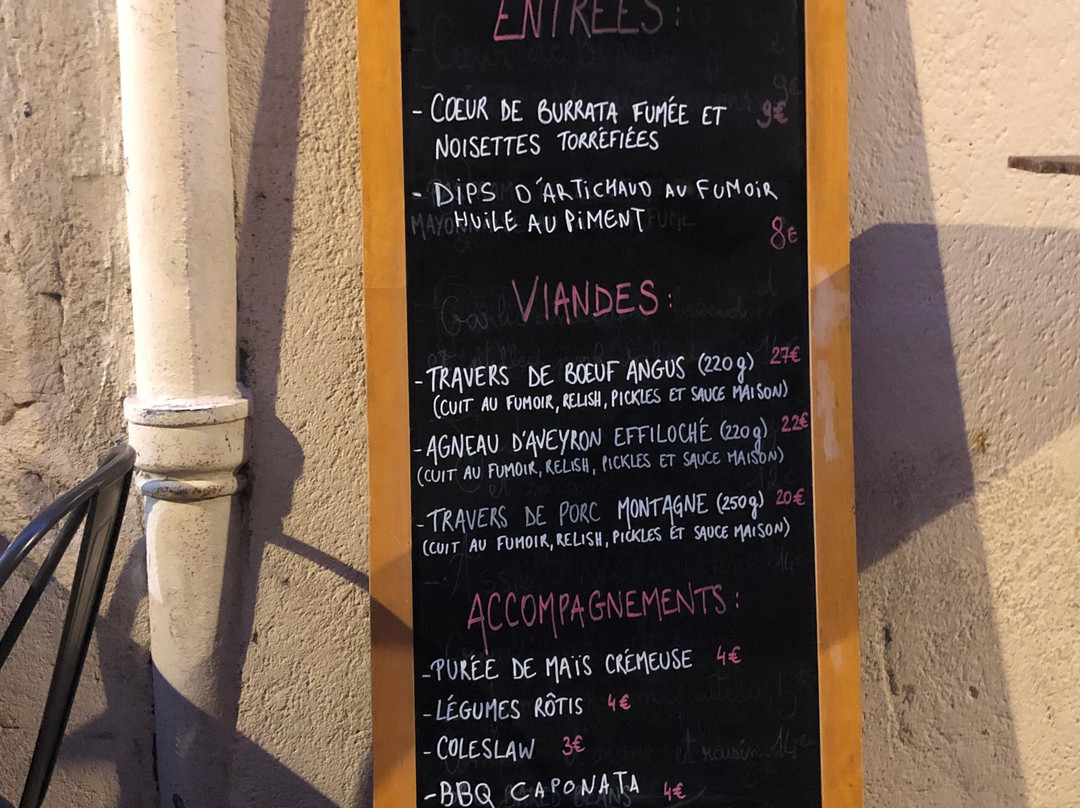 ENTRÉES :
- CŒUR DE BURRATA FUMÉE ET 9€
NOISETTES TORRÉFIÉES
- DIPS D'ARTICHAUD AU FUMOIR
HUILE AU PIMENT
8€
VIANDES :
- TRAVERS DE BŒUF ANGUS (220g) 27€
(CUIT AU FUMOIR, RELISH, PICKLES ET SAUCE MAISON)
- AGNEAU D'AVEYRON EFFILOCHÉ (220g) 22€
(CUIT AU FUMOIR, RELISH, PICKLES ET SAUCE MAISON)
- TRAVERS DE PORC MONTAGNE (250g) 20€
(CUIT AU FUMOIR, RELISH, PICKLES ET SAUCE MAISON)
ACCOMPAGNEMENTS :
- PURÉE DE MAÏS CRÉMEUSE 4€
- LÉGUMES RÔTIS 4€
- COLESLAW 3€
- BBQ CAPONATA 4€